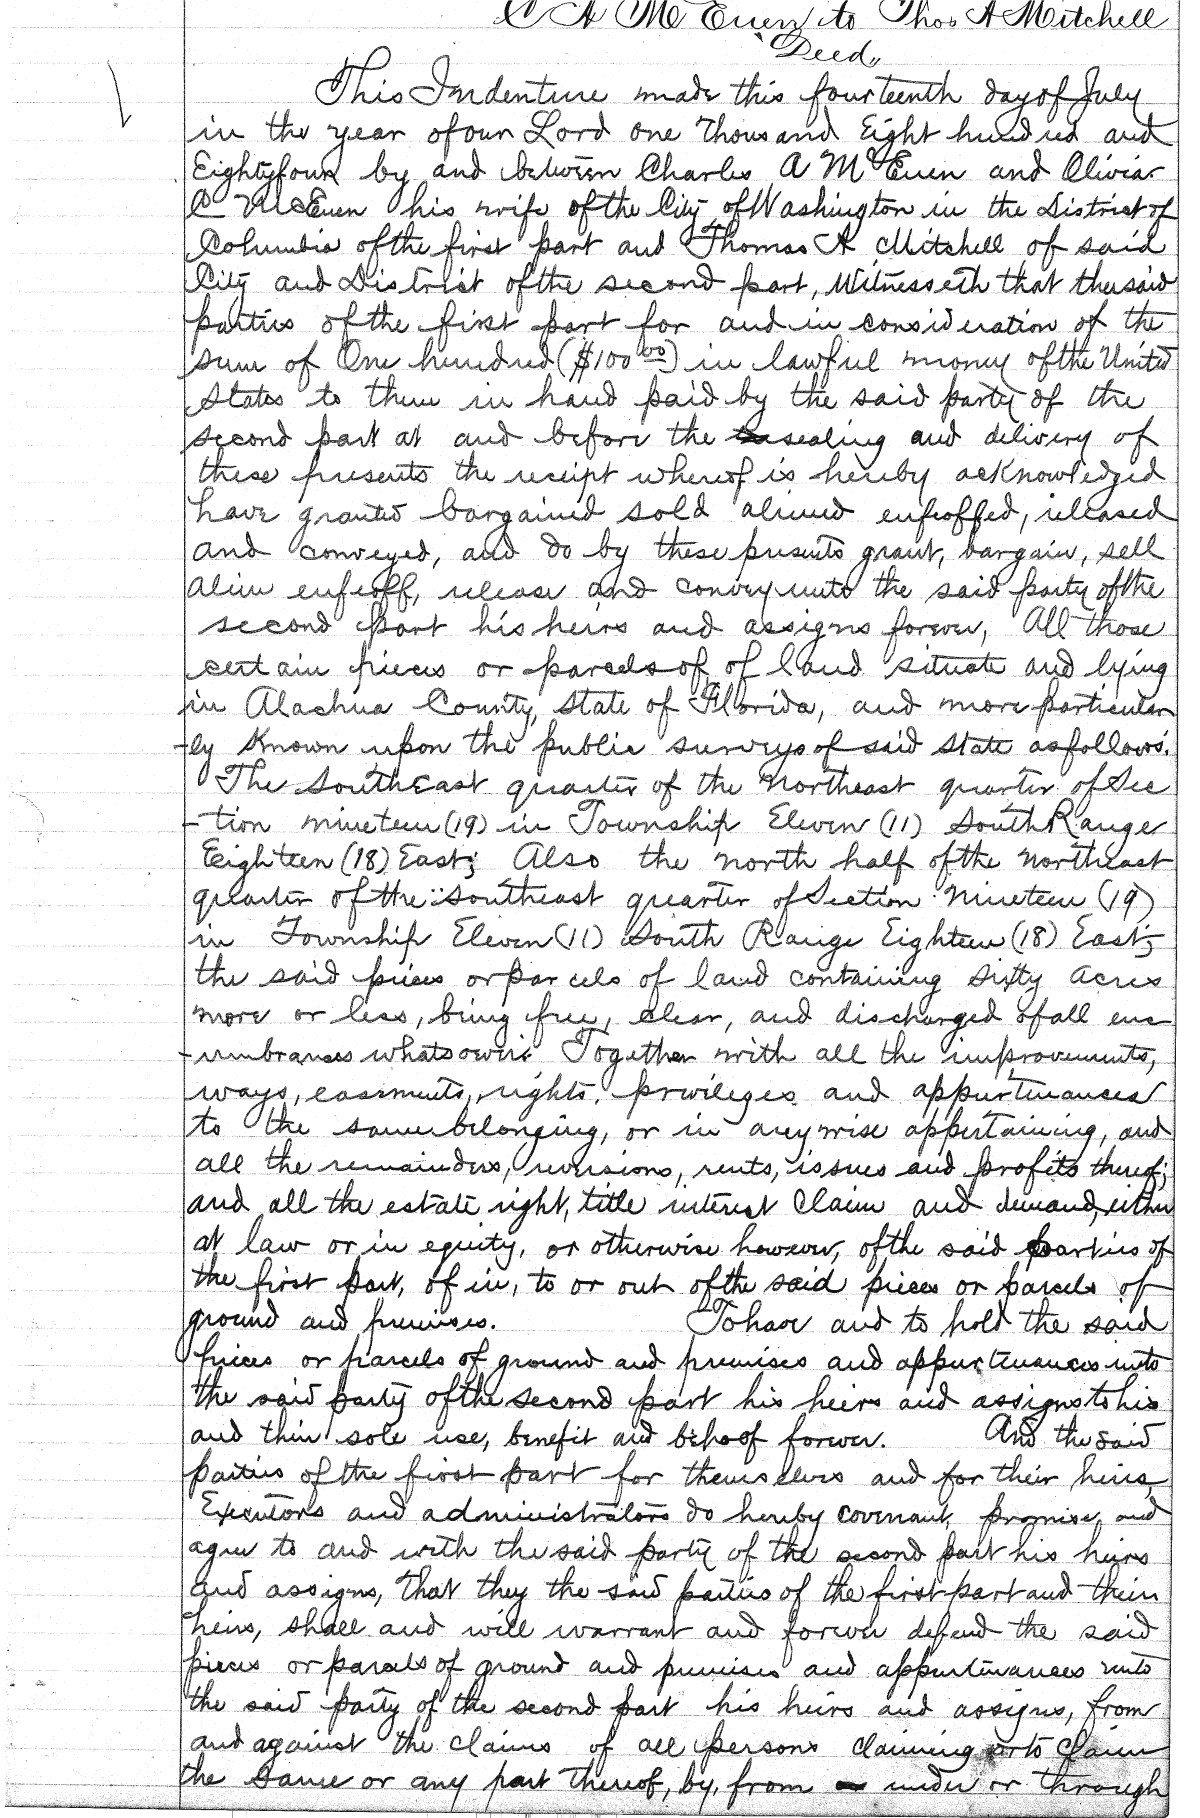 C A McEuen to Thos A Mitchell
Deed
This Indenture made this fourteenth day of July
in the year of our Lord one Thousand Eight hundred and
Eightyfour by and between Charles A McEuen and Olivia
C McEuen his wife of the City of Washington in the District of
Columbia of the first part and Thomas A Mitchell of said
City and District of the second part, Witnesseth that the said
parties of the first part for and in consideration of the
sum of One hundred ($100 00) in lawful money of the United
States to them in hand paid by the said party of the
second part at and before the sealing and delivery of
these presents the receipt whereof is hereby acknowledged
have granted bargained sold aliened enfeoffed, released
and conveyed, and do by these presents grant, bargain, sell
alien enfeoff, release and convey unto the said party of the
second part his heirs and assigns forever, All those
certain pieces or parcels of of land situate and lying
in Alachua County, State of Florida, and more particular
-ly known upon the public surveys of said State as follows.
The SouthEast quarter of the Northeast quarter of Sec
-tion nineteen (19) in Township Eleven (11) South Range
Eighteen (18) East; Also the north half of the northeast
quarter of the southeast quarter of Section Nineteen (19)
in Township Eleven (11) South Range Eighteen (18) East;
the said pieces or parcels of land containing sixty acres
more or less, being free, clear, and discharged of all enc
-umbrances whatsoever. Together with all the improvements,
ways, easements, rights, privileges and appurtenances
to the same belonging, or in anywise appertaining, and
all the remainders, reversions, rents, issues and profits thereof;
and all the estate right, title interest claim and demand, either
at law or in equity, or otherwise however, of the said parties of
the first part, of in, to or out of the said pieces or parcels of
ground and premises. To have and to hold the said
pieces or parcels of ground and premises and appurtenances unto
the said party of the second part his heirs and assigns to his
and their sole use, benefit and behoof forever. And the said
parties of the first part for themselves and for their heirs,
Executors and administrators do hereby covenant, promise, and
agree to and with the said party of the second part his heirs
and assigns, That they the said parties of the first part and their
heirs, shall and will warrant and forever defend the said
pieces or parcels of ground and premises and appurtenances unto
the said party of the second part his heirs and assigns, from
and against the claims of all persons claiming or to claim
the same or any part thereof, by, from under or through